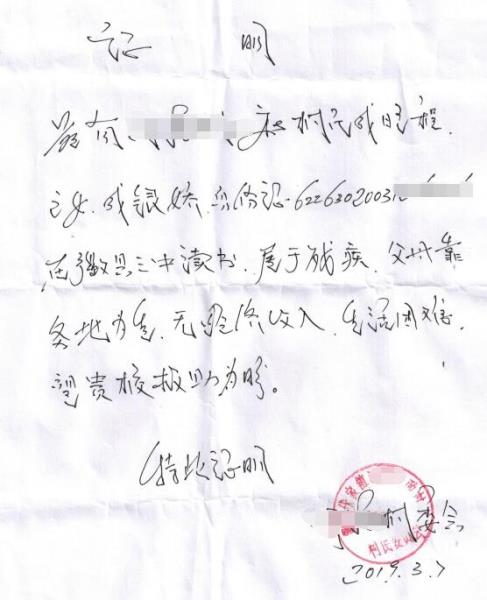 证 明
兹有 村民戎 程,
之女,戎银娇,身份证:622630200312
在 县三中读书,属于残疾,父母靠
务地为生,无经济收入,生活困难,
望贵校扶助为盼。
特此证明
村委会
2019.3.7